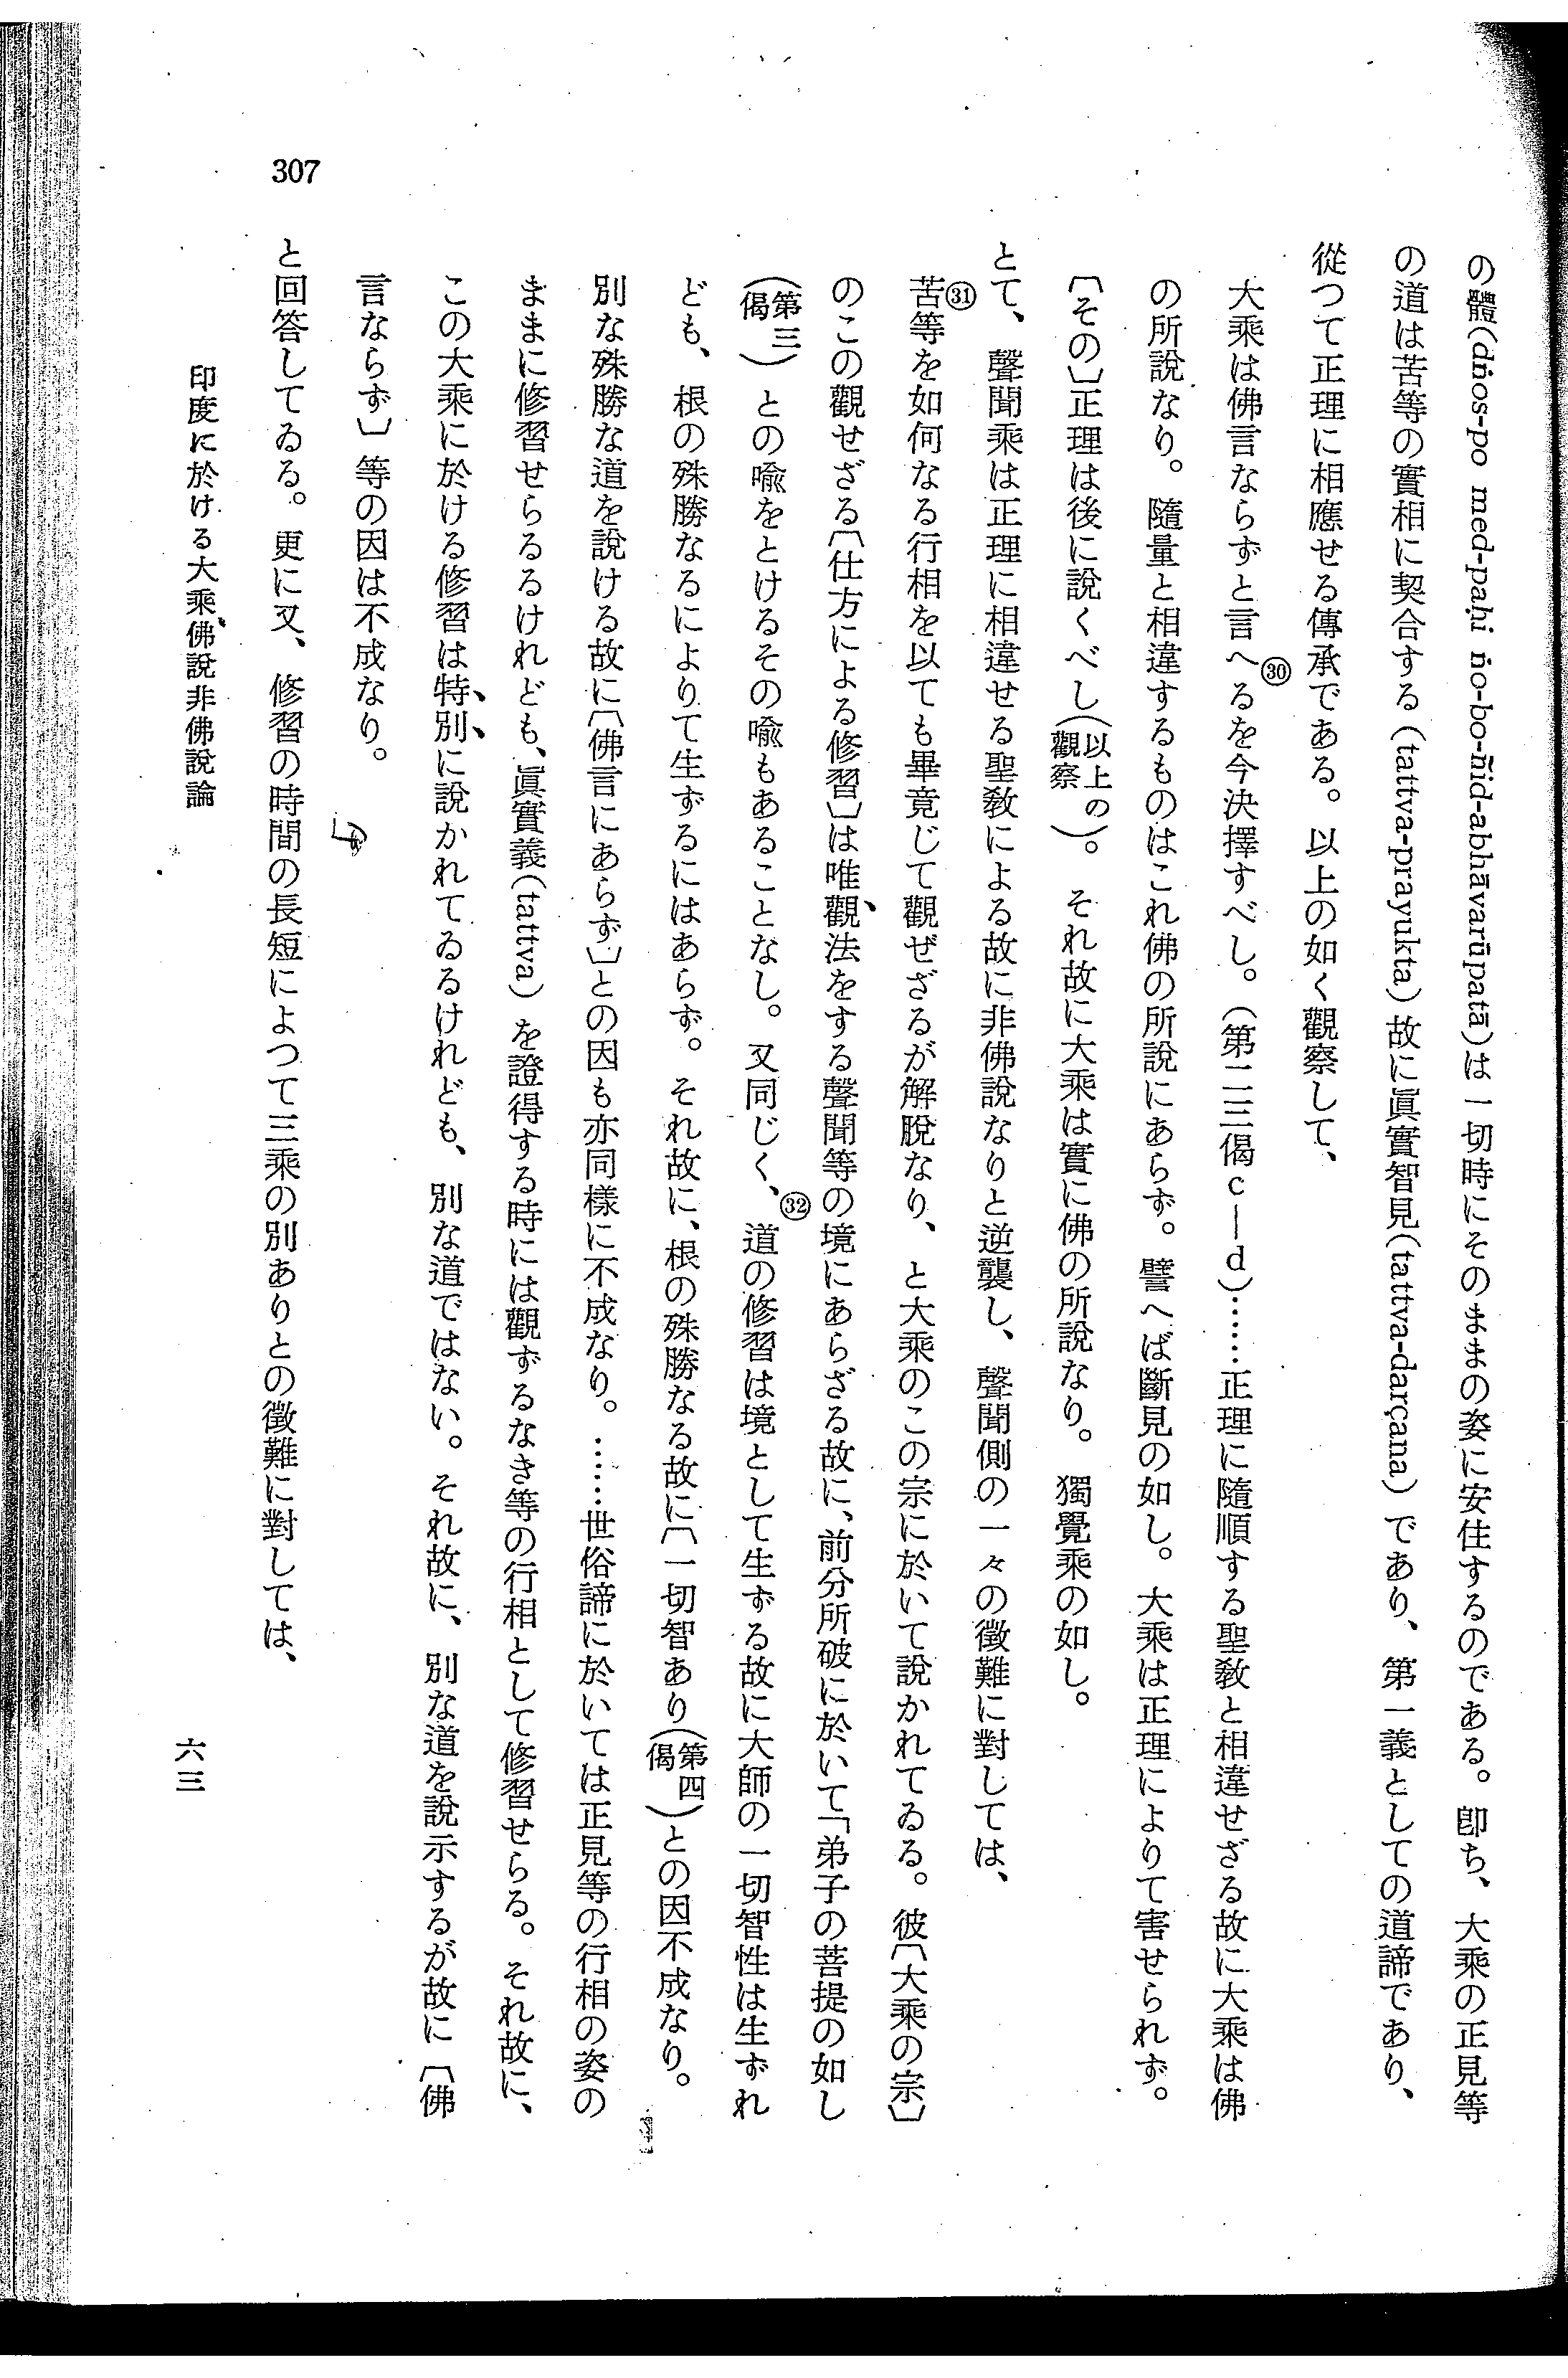 の體(dṅos-po med-paḥi ṅo-bo-ñid-abhāvarūpatā)は一切時にそのままの姿に安住するのである。卽ち、大乘の正見等
の道は苦等の實相に契合する(tattva-prayukta)故に眞實智見(tattva-darçana)であり、第一義としての道諦であり、
從つて正理に相應せる傳承である。以上の如く觀察して、
大乘は佛言ならずと言へ㉚るを今決擇すべし。(第二三偈c—d)……正理に隨順する聖敎と相違せざる故に大乘は佛
の所說なり。隨量と相違するものはこれ佛の所說にあらず。譬へば斷見の如し。大乘は正理によりて害せられず。
〔その〕正理は後に說くべし(以上の觀察)。それ故に大乘は實に佛の所說なり。獨覺乘の如し。
とて、聲聞乘は正理に相違せる聖敎による故に非佛說なりと逆襲し、聲聞側の一々の徵難に對しては、
㉛苦等を如何なる行相を以ても畢竟じて觀ぜざるが解脫なり、と大乘のこの宗に於いて說かれてゐる。彼〔大乘の宗〕
のこの觀せざる〔仕方による修習〕は唯觀法をする聲聞等の境にあらざる故に、前分所破に於いて「弟子の菩提の如し
(第三偈)との喩をとけるその喩もあることなし。又同じく、㉜道の修習は境として生ずる故に大師の一切智性は生ずれ
ども、根の殊勝なるによりて生ずるにはあらず。それ故に、根の殊勝なる故に〔一切智あり(第四偈)との因不成なり。
別な殊勝な道を說ける故に〔佛言にあらず〕との因も亦同樣に不成なり。……世俗諦に於いては正見等の行相の姿の
ままに修習せらるるけれども、眞實義(tattva)を證得する時には觀ずるなき等の行相として修習せらる。それ故に、
この大乘に於ける修習は特別に說かれてゐるけれども、別な道ではない。それ故に、別な道を說示するが故に〔佛
言ならず〕等の因は不成なり。
と回答してゐる。更に又、修習の時間の長短によつて三乘の別ありとの徵難に對しては、
印度に於ける大乘佛說非佛說論
六三
307